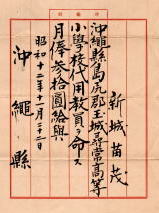 新城苗茂
沖繩縣島尻郡玉城尋常高等
小學校代用教員ヲ命ス
月俸參拾圓給與
昭和十二年十一月三十日
沖繩縣